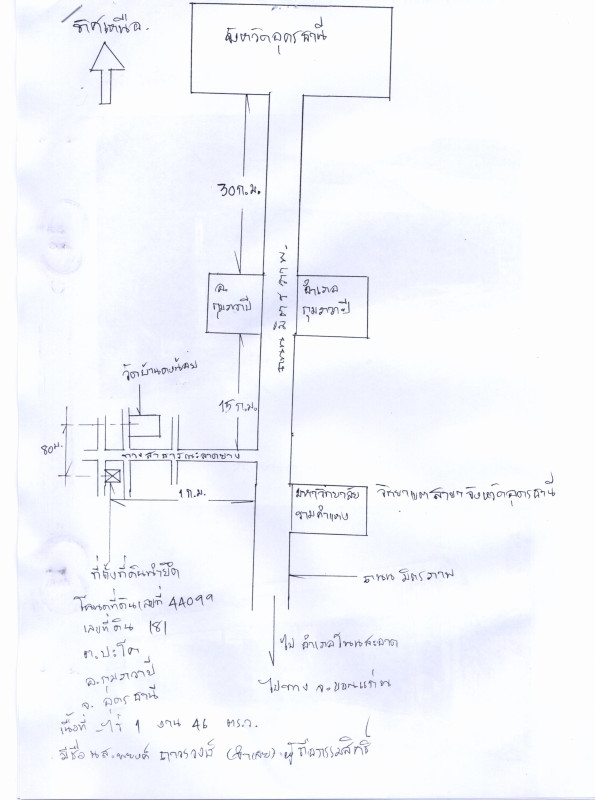 ทิศเหนือ
จังหวัดอุดรธานี
30 ก.ม.
ถนนมิตรภาพ
อ.
กุมภวาปี
อำเภอ
กุมภวาปี
วัดบ้านดงน้อย
15 ก.ม.
80 ม.
ทางสาธารณะลาดยาง
1 ก.ม.
มหาวิทยาลัย
รามคำแหง
วิทยาเขตสาขาจังหวัดอุดรธานี
ถนนมิตรภาพ
ที่ตั้งที่ดินนำยึด
โฉนดที่ดินเลขที่ 44099
เลขที่ดิน 181
ต.ปะโค
อ.กุมภวาปี
จ.อุดรธานี
ไป อำเภอโนนสะอาด
ไปทาง จ.ขอนแก่น
เนื้อที่ - ไร่ 1 งาน 46 ตร.ว.
มีชื่อ น.ส. ถาวรวงษ์ (จำเลย) ผู้ถือกรรมสิทธิ์